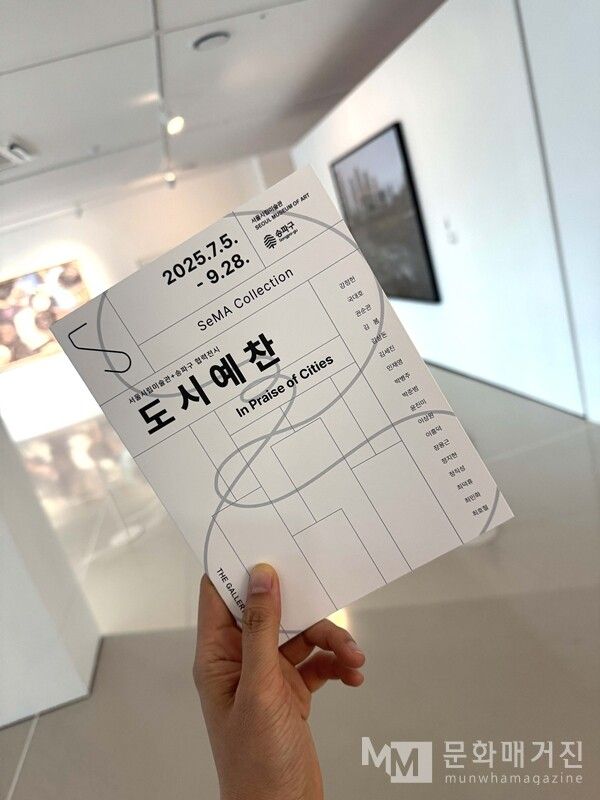 서울시립미술관
SEOUL MUSEUM OF ART
송파구
2025.7.5.
- 9.28.
SeMA Collection
서울시립미술관+송파구 협력전시
도시예찬
In Praise of Cities
김정헌
국대호
권순관
김세진
안재영
박병주
박준범
윤진미
이상원
이흥덕
장용근
정지현
정직성
최덕휴
최민화
최호철
THE GALLER
MM 문화매거진
munwhamagazine